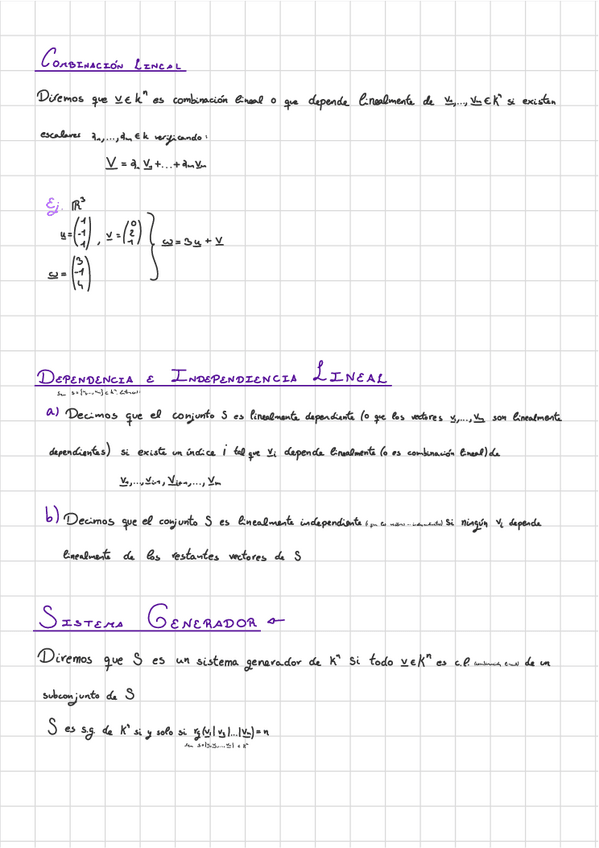 COMBINACIÓN LINEAL
Diremos que v ∈ kⁿ es combinación lineal o que depende linealmente de v₁,..., vₘ ∈ kⁿ si existen
escalares λ₁,..., λₘ ∈ k verificando:
v = λ₁ v₁ + ... + λₘ vₘ
Ej. ℝ³
u = (1 -1 1), v = (0 2 1) } ω = 3u + v
ω = (3 -1 4)
DEPENDENCIA E INDEPENDIENCIA LINEAL
a) Decimos que el conjunto S es linealmente dependiente (o que los vectores v₁,..., vₘ son linealmente
dependientes) si existe un índice i tal que vᵢ depende linealmente (o es combinación lineal) de
v₁,..., vᵢ₋₁, vᵢ₊₁,..., vₘ
b) Decimos que el conjunto S es linealmente independiente si ningún vᵢ depende
linealmente de los restantes vectores de S
SISTEMA GENERADOR
Diremos que S es un sistema generador de kⁿ si todo v ∈ kⁿ es c.l. de un
subconjunto de S
S es s.g. de kⁿ si y solo si rg(v₁|v₂|...|vₘ) = n